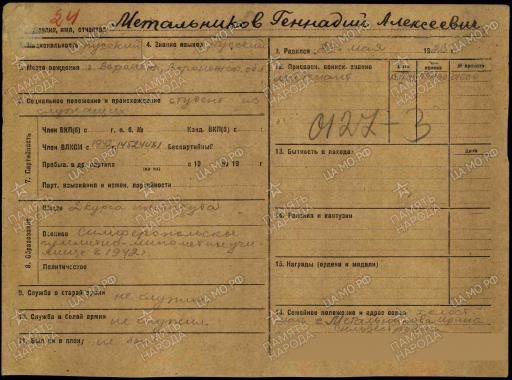 24
Метальников Геннадий Алексеевич
Фамилия, имя, отчество
3. Национальность Русский 4. Знание языков Русский
5. Место рождения г. Воронеж, Воронежск. обл
6. Социальное положение и происхождение студент из служащих
7. Партийность
Член ВКП(б) с г. п. б. № Канд. ВКП(б) с
Член ВЛКСМ с Беспартийный
Пребыв. в др. партиях с 19 по 19 г.
Парт. взыскания и измен. партийности
8. Образование
Общее 2 курса института
Военное Симферопольское
пулеметно-минометн учи-
лище в 1942 г.
Политическое
9. Служба в старой армии не служил
10. Служба в белой армии не служил
11. Был ли в плену не был
1. Родился мая
12. Присвоен. воинск. звание
№ приказа
лейтенант
0127-3
13. Бытность в походах
дата
14. Ранения и контузии
15. Награды (ордена и медали)
16. Семейное положение и адрес семьи холост
мать Метальникова Ирина
ПАМЯТЬ НАРОДА
ЦАМО.РФ